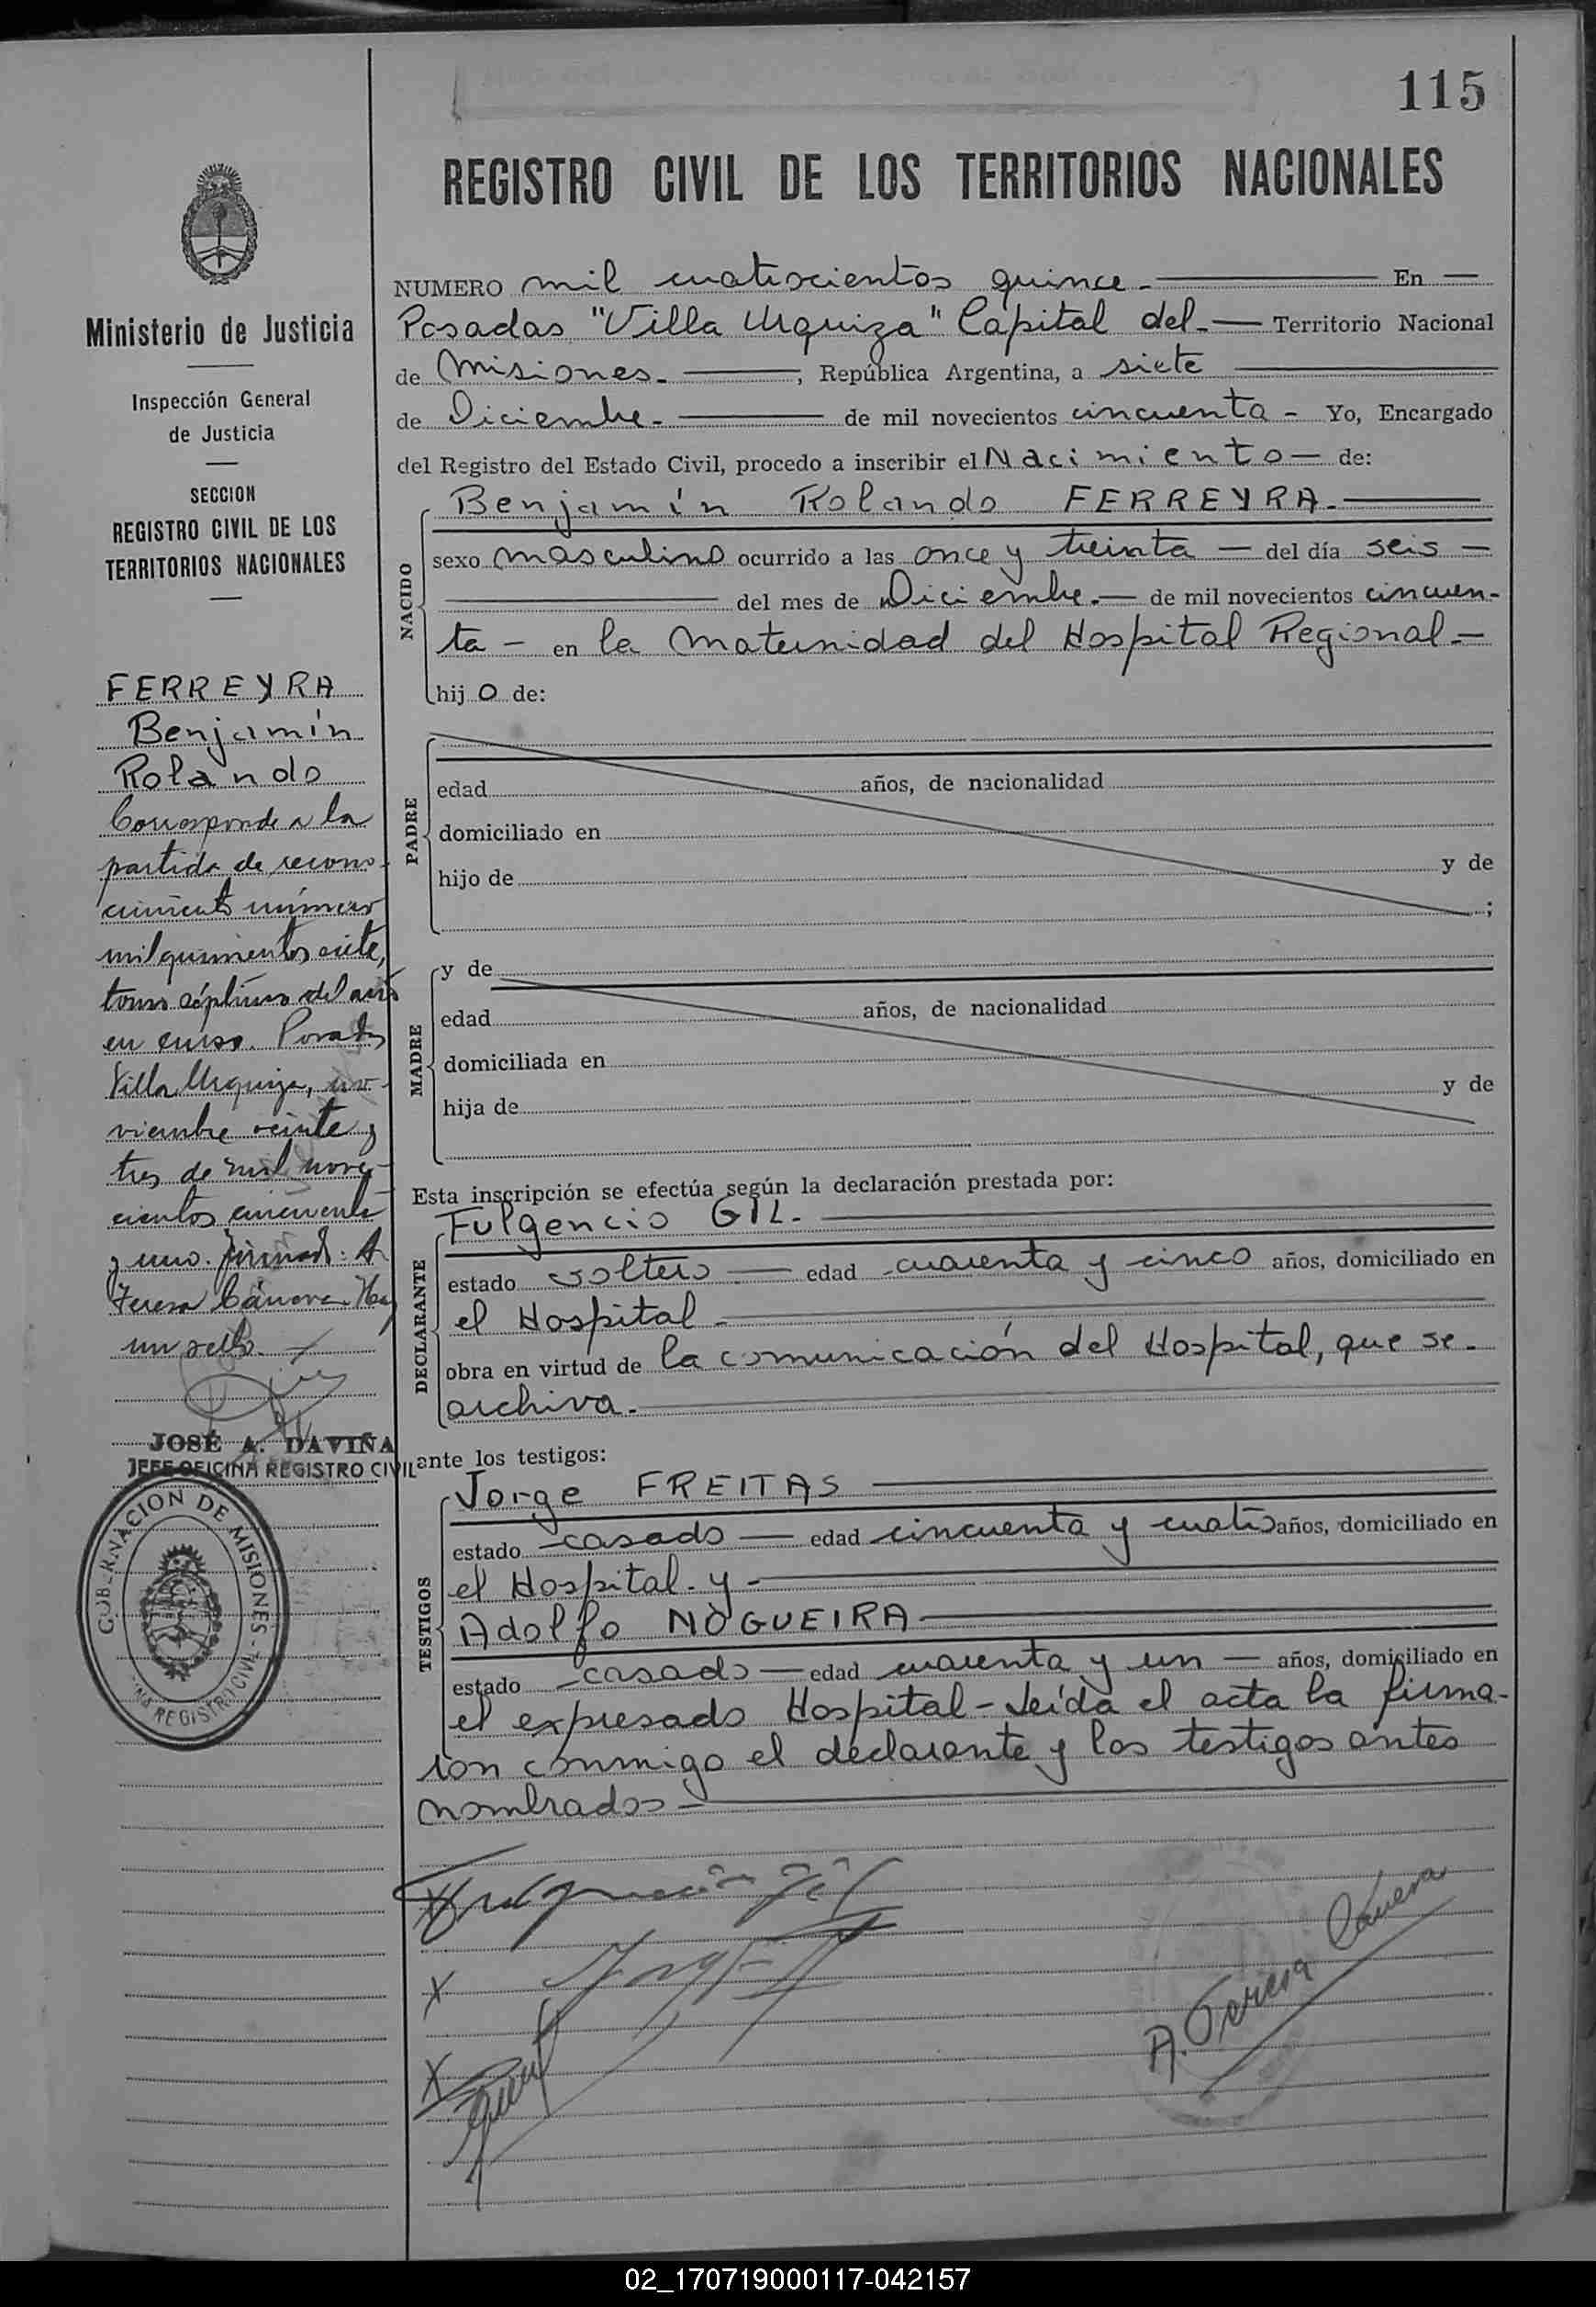 115
REGISTRO CIVIL DE LOS TERRITORIOS NACIONALES
Ministerio de Justicia
Inspección General
de Justicia
SECCION
REGISTRO CIVIL DE LOS
TERRITORIOS NACIONALES
FERREYRA
Benjamín
Rolando
Corresponde a la
partida de recono-
cimiento número
mil quinientos siete,
tomo séptimo del año
en curso. Posadas
Villa Urquiza, no-
viembre veinte y
tres de mil nove-
cientos cincuenta
y uno. Firmado: A.
Teresa Cánova. Hay
un sello.
JOSÉ A. DAVIÑA
JEFE OFICINA REGISTRO CIVIL
GOBERNACION DE MISIONES
REGISTRO CIVIL
NUMERO mil cuatrocientos quince.- En
Posadas "Villa Urquiza" Capital del.- Territorio Nacional
de Misiones.- , República Argentina, a siete
de Diciembre.- de mil novecientos cincuenta - Yo, Encargado
del Registro del Estado Civil, procedo a inscribir el Nacimiento- de:
NACIDO
Benjamín Rolando FERREYRA.-
sexo masculino ocurrido a las once y treinta - del día seis -
del mes de Diciembre.- de mil novecientos cincuen-
ta - en la Maternidad del Hospital Regional.-
hij o de:
PADRE
edad años, de nacionalidad
domiciliado en
hijo de y de
;
MADRE
y de
edad años, de nacionalidad
domiciliada en
hija de y de
Esta inscripción se efectúa según la declaración prestada por:
DECLARANTE
Fulgencio GIL.-
estado soltero - edad cuarenta y cinco años, domiciliado en
el Hospital -
obra en virtud de la comunicación del Hospital, que se
archiva.-
ante los testigos:
TESTIGOS
Jorge FREITAS
estado casado - edad cincuenta y cuatro años, domiciliado en
el Hospital.- y -
Adolfo NOGUEIRA
estado casado - edad cuarenta y un - años, domiciliado en
el expresado Hospital - Leída el acta la firma-
ron conmigo el declarante y los testigos antes
nombrados -
Fulgencio Gil
A. Teresa Cánova
02_170719000117-042157